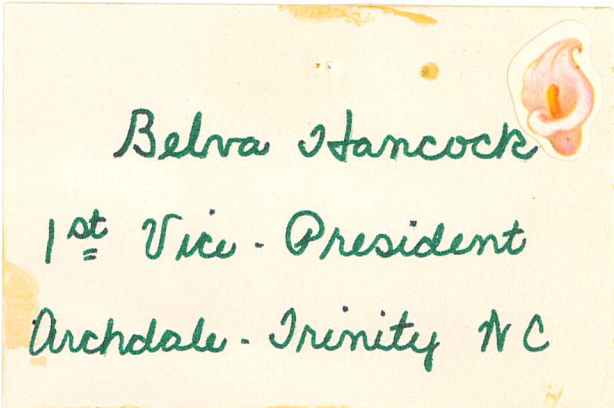 Belva Hancock
1st Vice-President
Archdale-Trinity NC